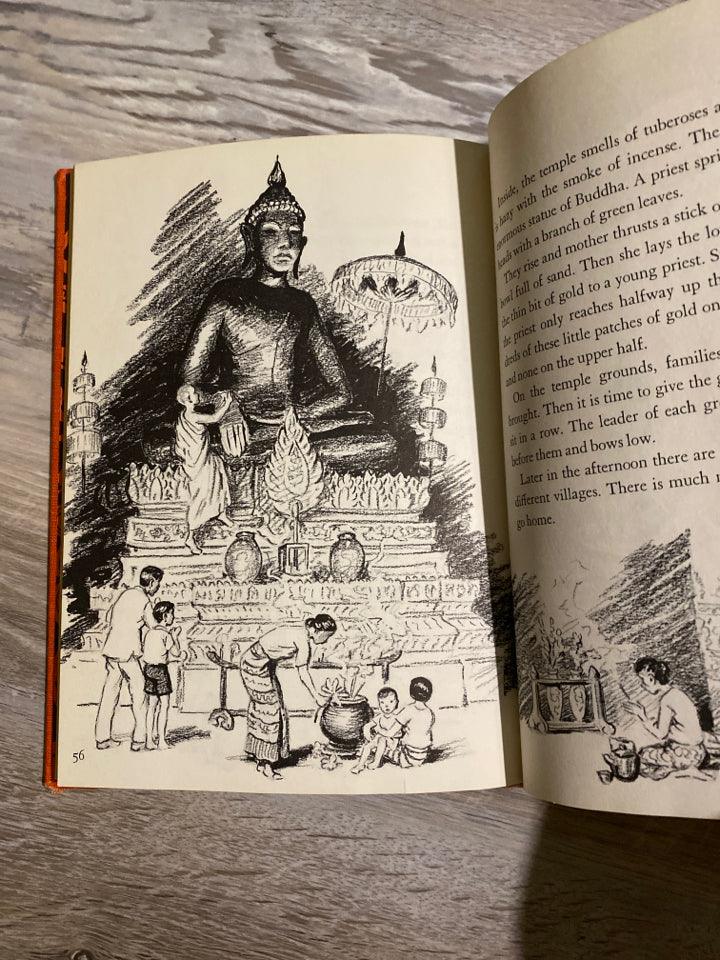 56
Inside, the temple smells of tuberoses
is hazy with the smoke of incense. The
enormous statue of Buddha. A priest
heads with a branch of green leaves.
They rise and mother thrusts a stick
bowl full of sand. Then she lays the
the thin bit of gold to a young priest.
the priest only reaches halfway up
of these little patches of gold
and none on the upper half.
On the temple grounds, families
brought. Then it is time to give the
sit in a row. The leader of each
before them and bows low.
Later in the afternoon there are
different villages. There is much
go home.